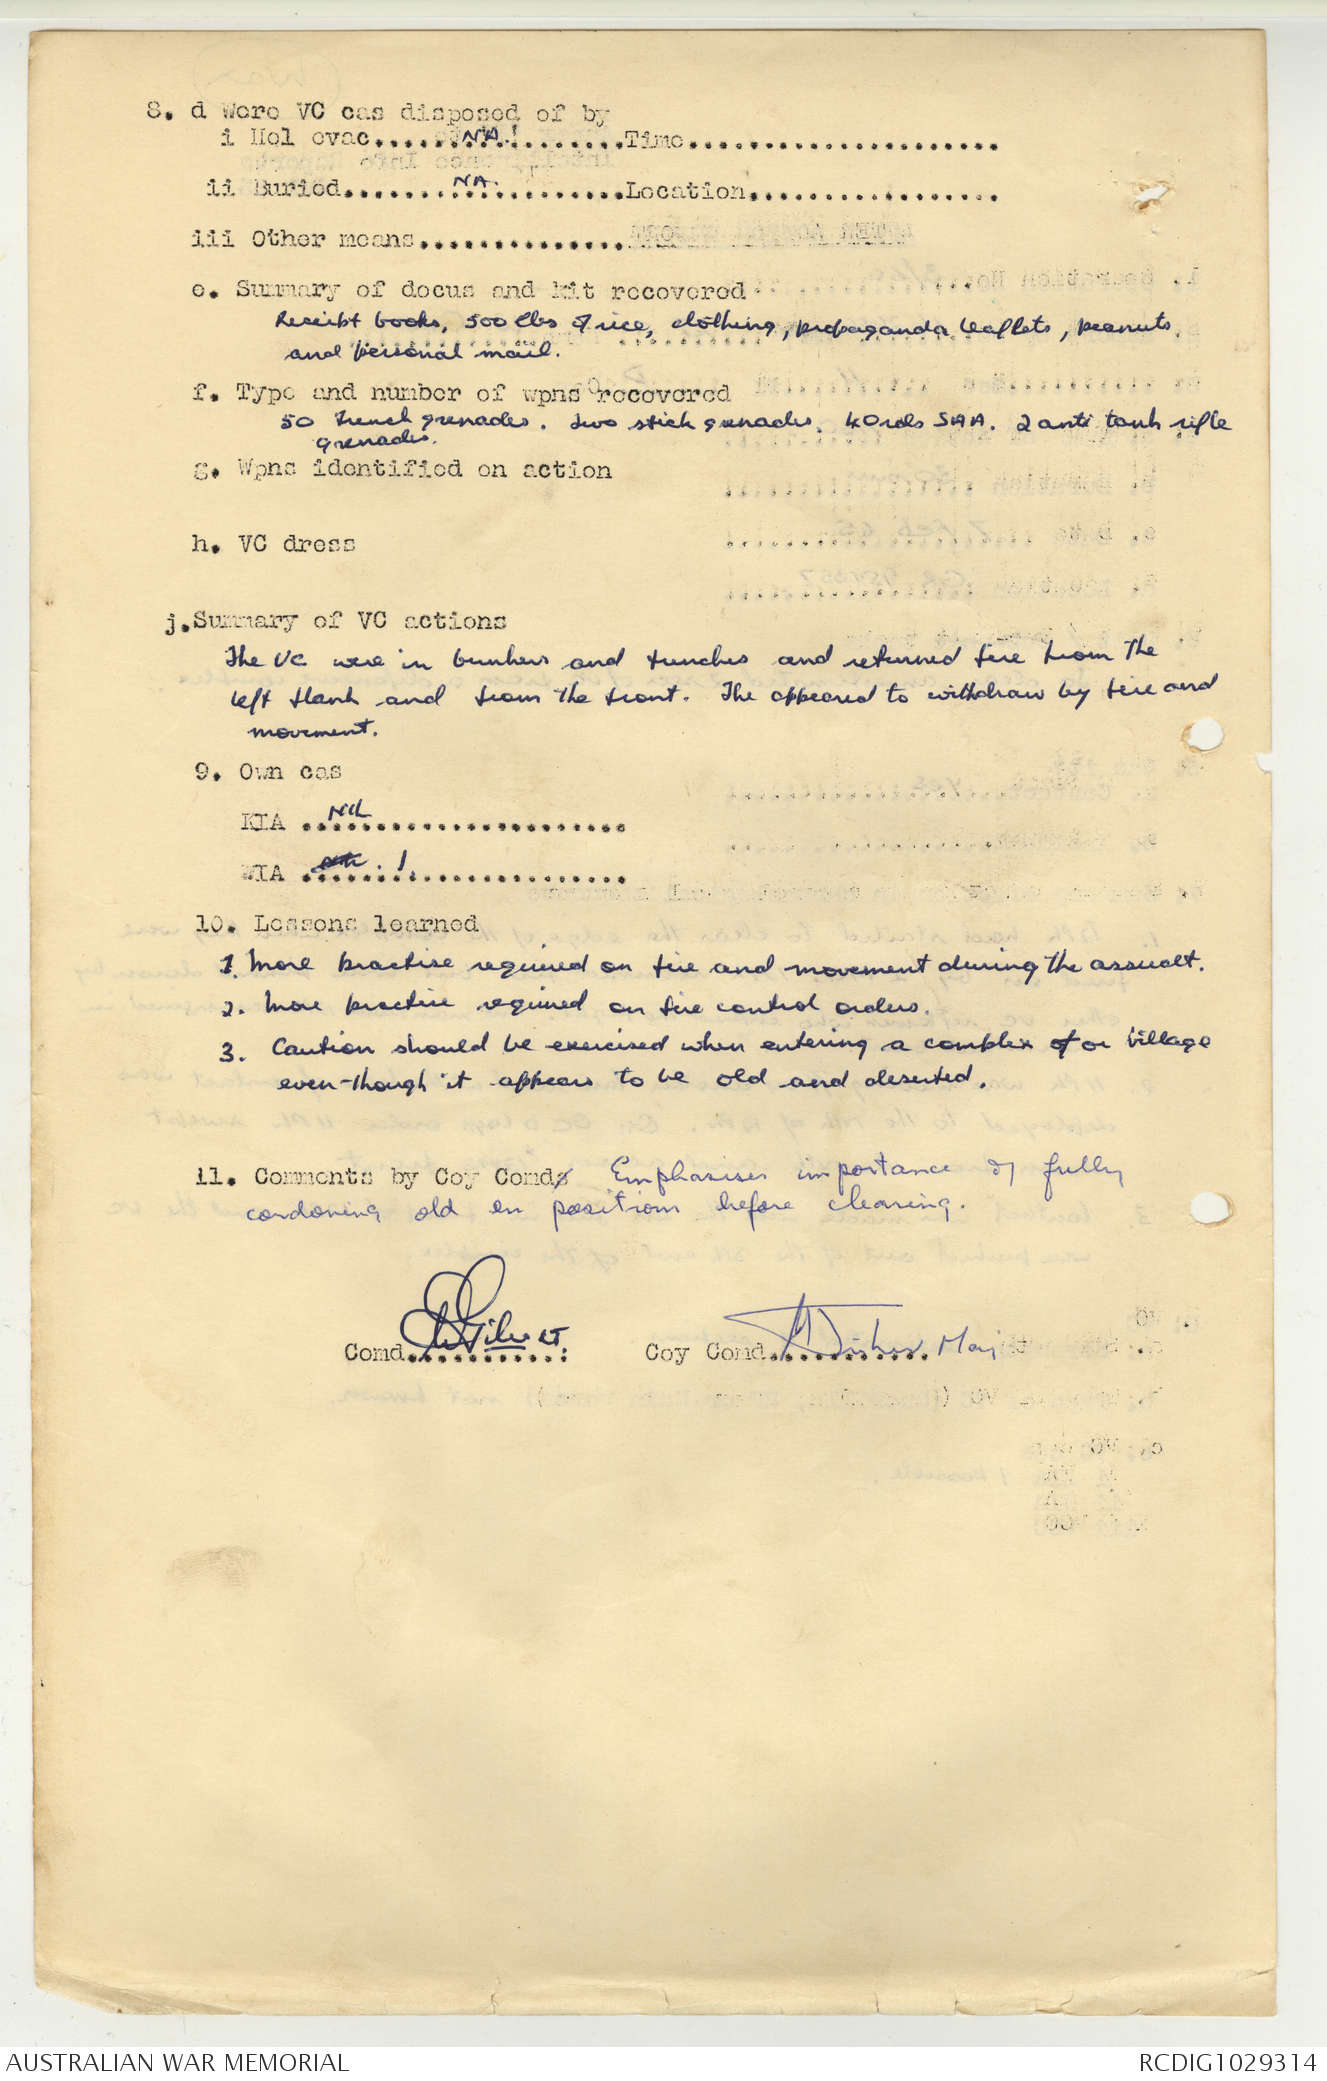 8. d Were VC cas disposed of by
i Hel evac....NA.......Time......................
ii Buried.......NA.........Location.................
iii Other means..............
e. Summary of docus and kit recovered
Receipt books, 500 lbs of rice, clothing, propaganda leaflets, peanuts,
and personal mail.
f. Type and number of wpns recovered
50 French grenades. two stick grenades. 40 rds SAA. 2 anti tank rifle
grenades.
g. Wpns identified on action
h. VC dress
j. Summary of VC actions
The VC were in bunkers and trenches and returned fire from the
left flank and from the front. The appeared to withdraw by fire and
movement.
9. Own cas
KIA ..NIL....................
WIA ......1...............
10. Lessons learned
1. More practise required on fire and movement during the assualt.
2. More practise required on fire control orders.
3. Caution should be exercised when entering a complex of or village
even-though it appears to be old and deserted.
11. Comments by Coy Comds Emphasises importance of fully
cordoning old en positions before clearing.
Comd........... LT. Coy Comd........... Maj
AUSTRALIAN WAR MEMORIAL RCDIG1029314